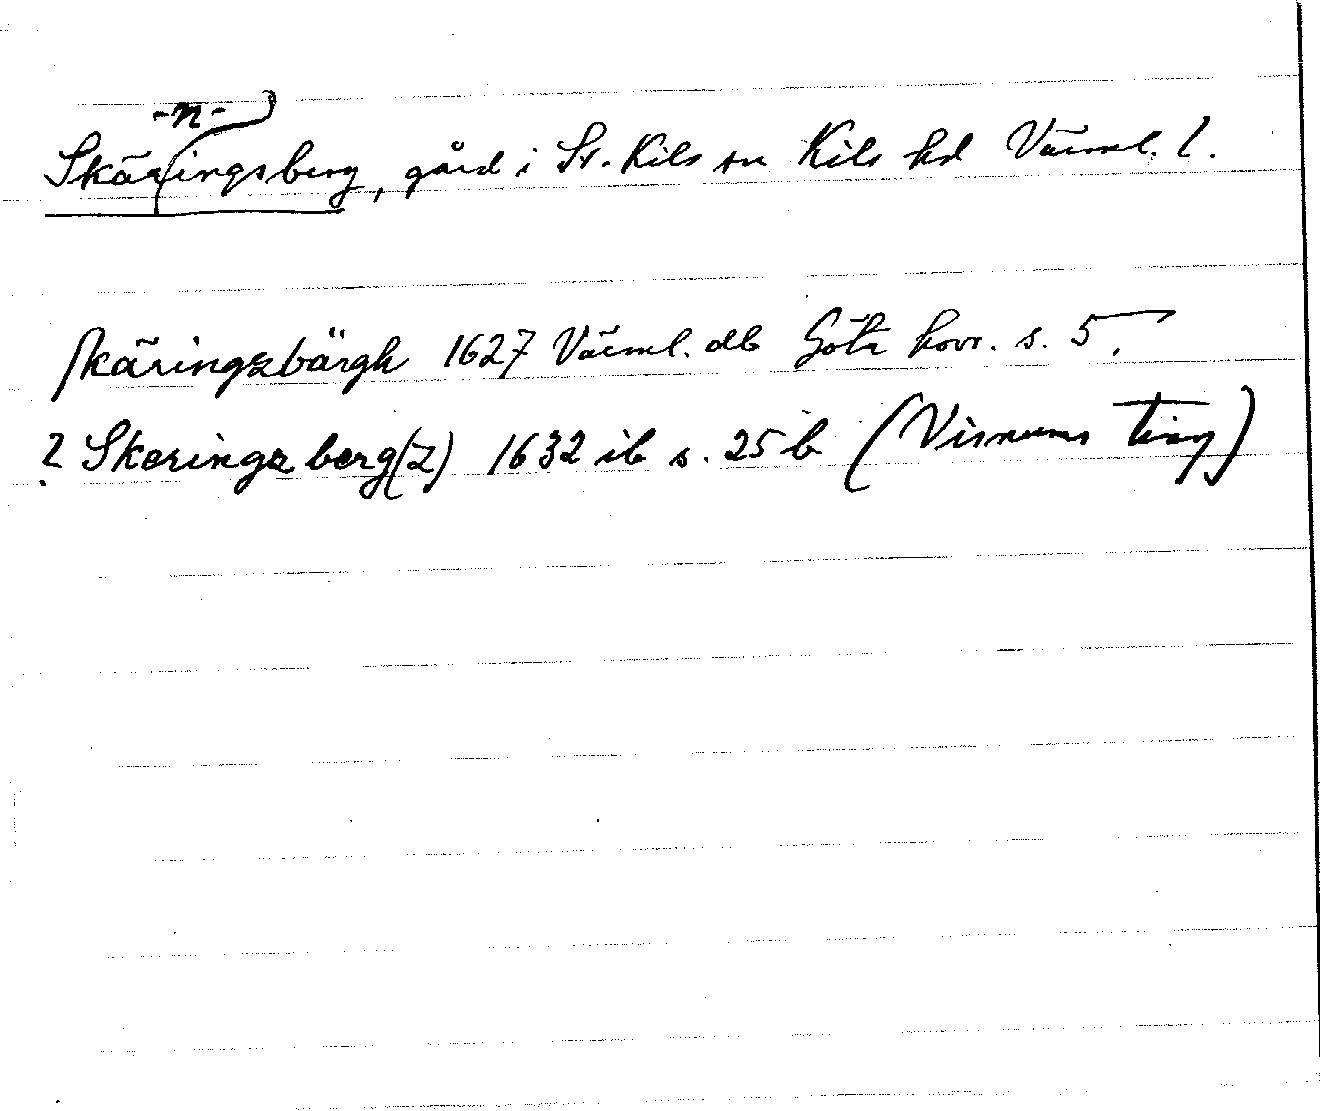 -n-
Skäringsberg, gård i St. Kils sn Kils hd Värml. l.
skäringzbärgh 1627 Värml. db Göta hovr. s. 5.
? Skeringz berg(z) 1632 ib s. 25 b (Visnums Ting)